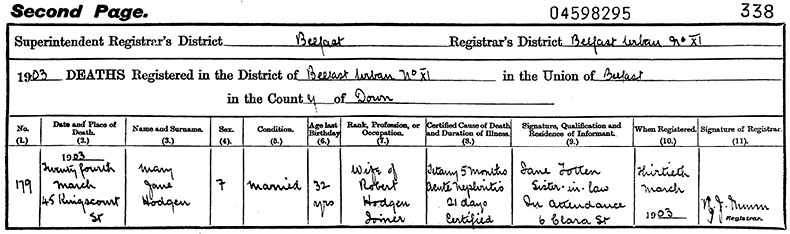 Second Page. 04598295 338
Superintendent Registrar's District Belfast Registrar's District Belfast Urban No XI
1903 DEATHS Registered in the District of Belfast Urban No XI in the Union of Belfast
in the County of Down
No. Date and Place of Death. Name and Surname. Sex. Condition. Age last Birthday Rank, Profession, or Occupation. Certified Cause of Death and Duration of Illness. Signature, Qualification and Residence of Informant. When Registered. Signature of Registrar.
(1.) (2.) (3.) (4.) (5.) (6.) (7.) (8.) (9.) (10.) (11.)
1903
Twenty fourth Mary Wife of Tetany 5 months Jane Totten Thirtieth
179 March Jane F Married 32 Robert Acute nephritis Sister-in-law March
45 Kingscourt Hodgen yrs Hodgen 21 days In attendance
St Joiner Certified 6 Clara St 1903 Registrar.